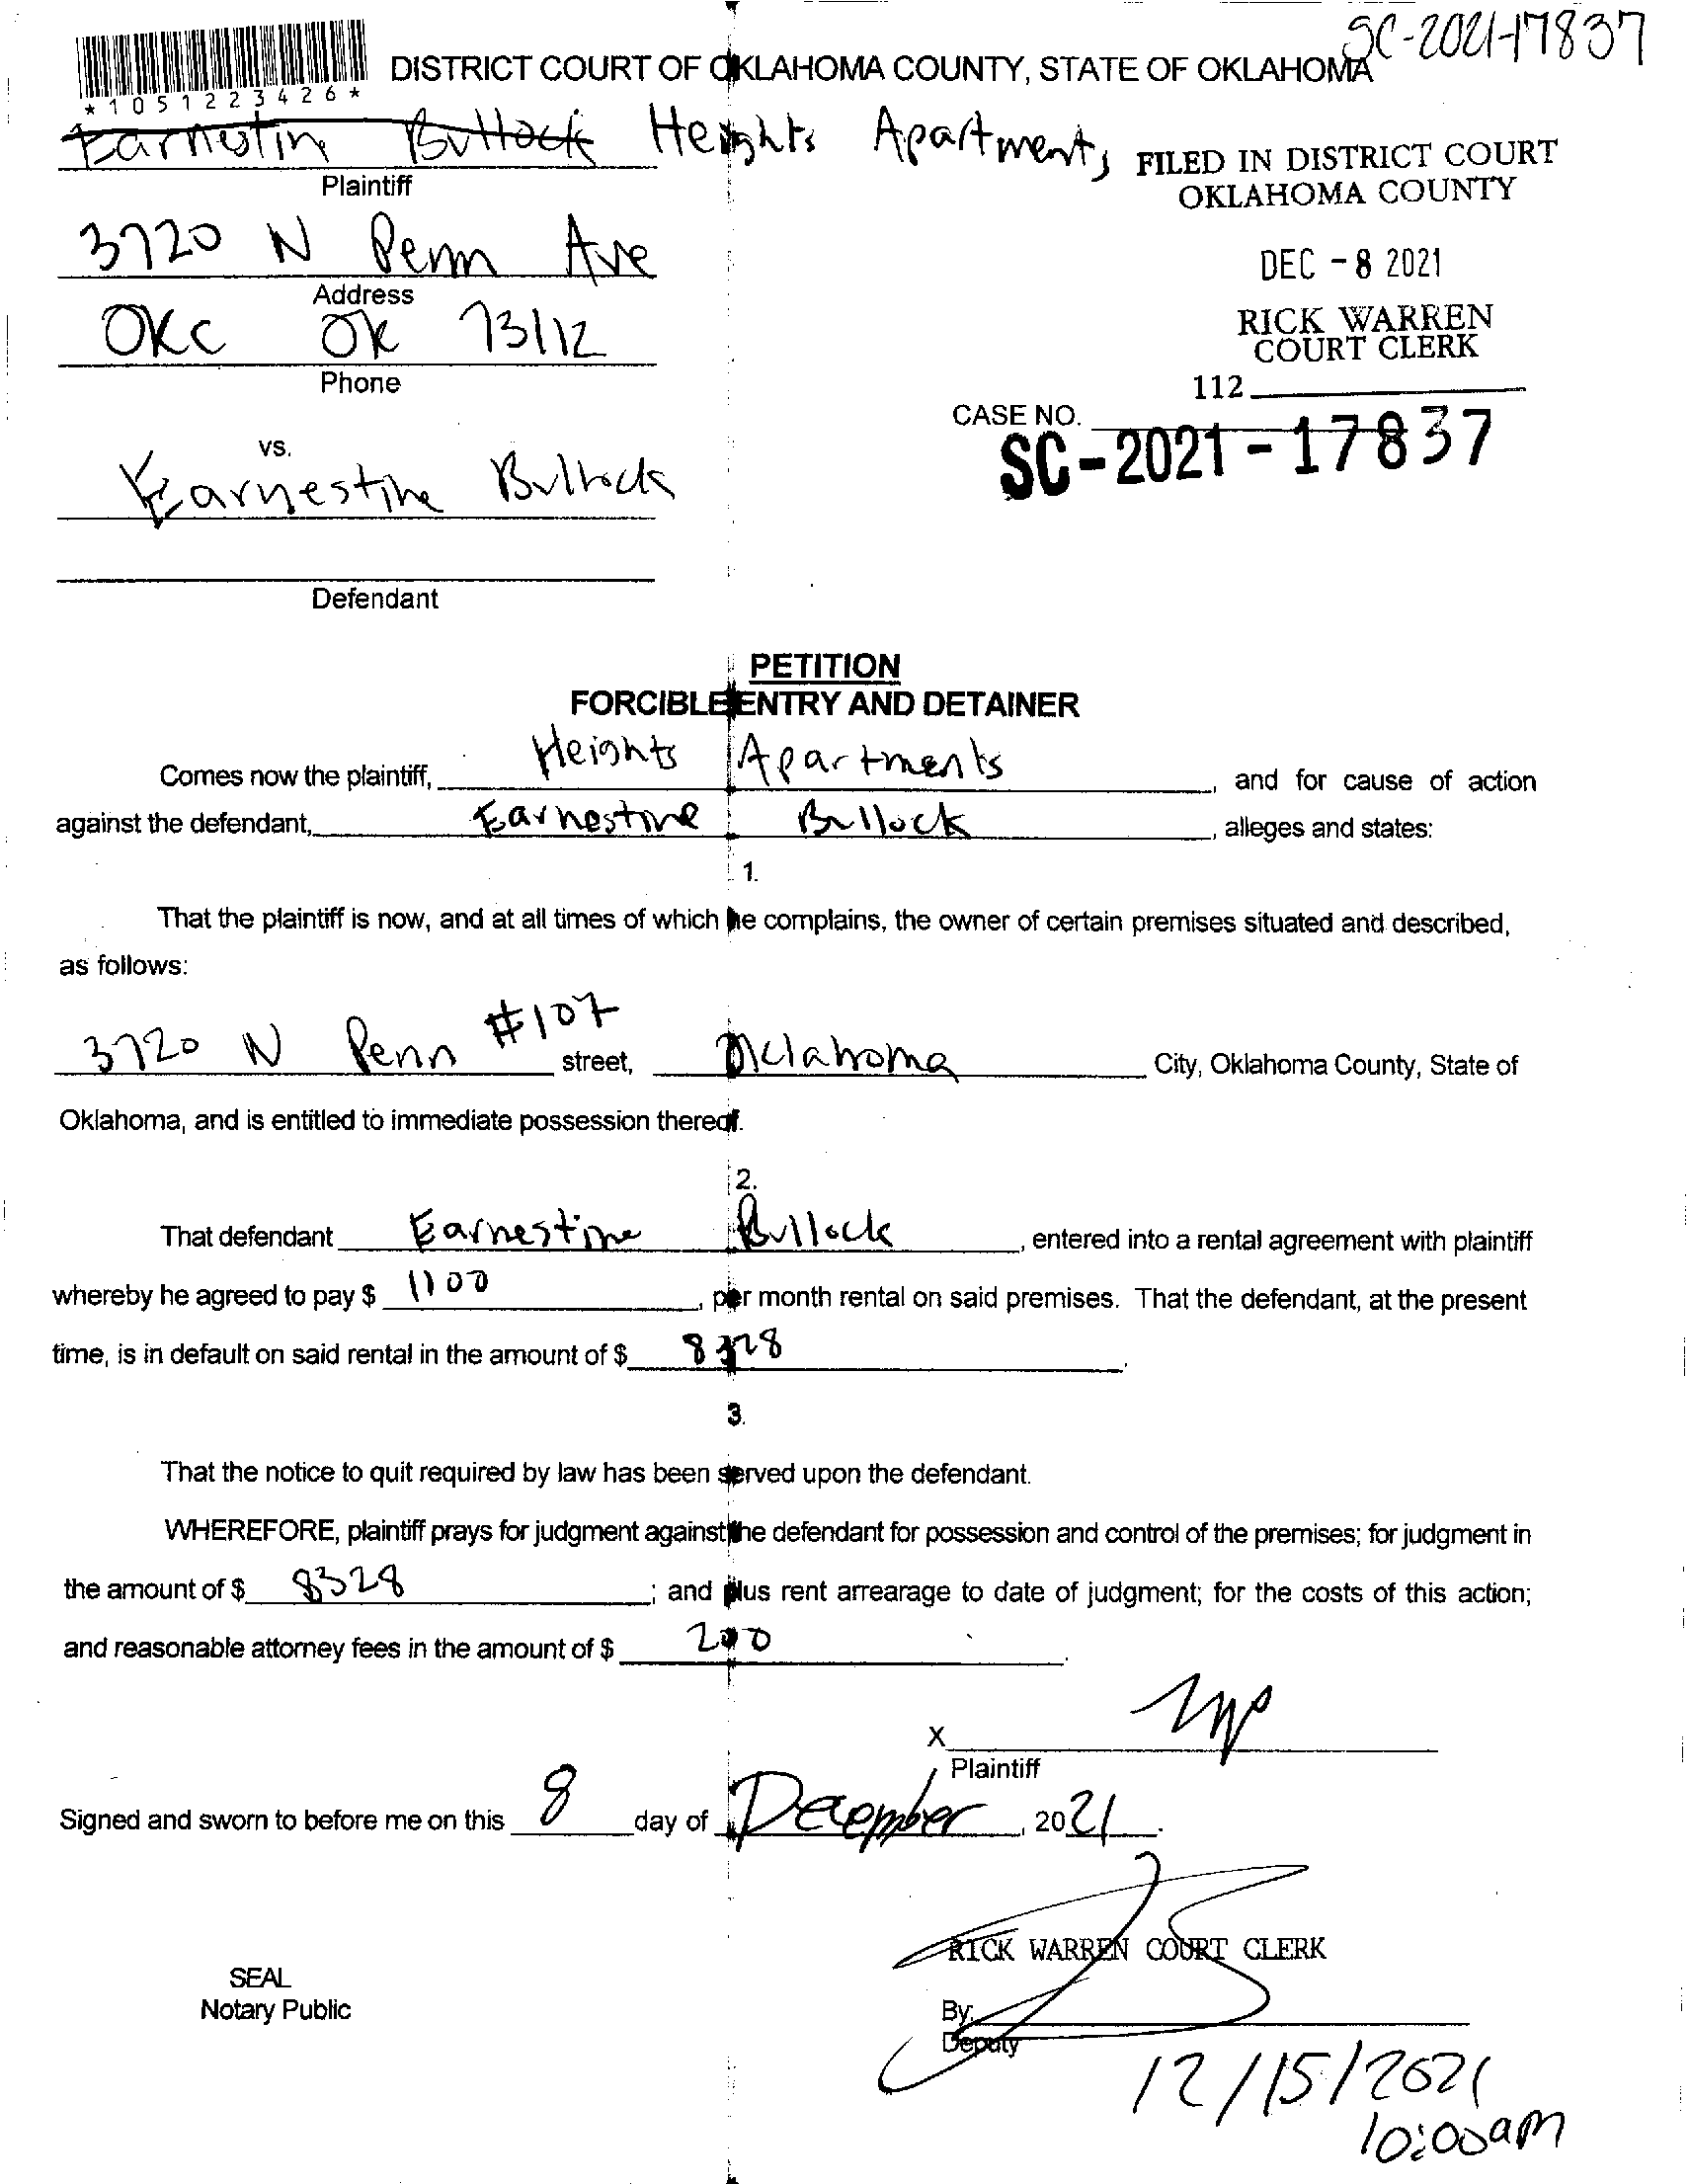 SC-2021-17837
DISTRICT COURT OF OKLAHOMA COUNTY, STATE OF OKLAHOMA
*1051223426*
Earnestin Bullock Heights Apartments
Plaintiff
FILED IN DISTRICT COURT
OKLAHOMA COUNTY
3720 N Penn Ave
Address
DEC -8 2021
OKC OK 73112
Phone
RICK WARREN
COURT CLERK
112
CASE NO.
SC-2021-17837
vs.
Earnestine Bullock
Defendant
PETITION
FORCIBLE ENTRY AND DETAINER
Comes now the plaintiff, Heights Apartments, and for cause of action
against the defendant, Earnestine Bullock, alleges and states:
1.
That the plaintiff is now, and at all times of which he complains, the owner of certain premises situated and described,
as follows:
3720 N Penn #107 street, Oklahoma City, Oklahoma County, State of
Oklahoma, and is entitled to immediate possession thereof.
2.
That defendant Earnestine Bullock, entered into a rental agreement with plaintiff
whereby he agreed to pay $ 1100, per month rental on said premises. That the defendant, at the present
time, is in default on said rental in the amount of $ 8328.
3.
That the notice to quit required by law has been served upon the defendant.
WHEREFORE, plaintiff prays for judgment against the defendant for possession and control of the premises; for judgment in
the amount of $ 8328; and plus rent arrearage to date of judgment; for the costs of this action;
and reasonable attorney fees in the amount of $ 200.
X
Plaintiff
Signed and sworn to before me on this 8 day of December, 2021.
RICK WARREN COURT CLERK
SEAL
Notary Public
By:
Deputy
12/15/2021
10:00am